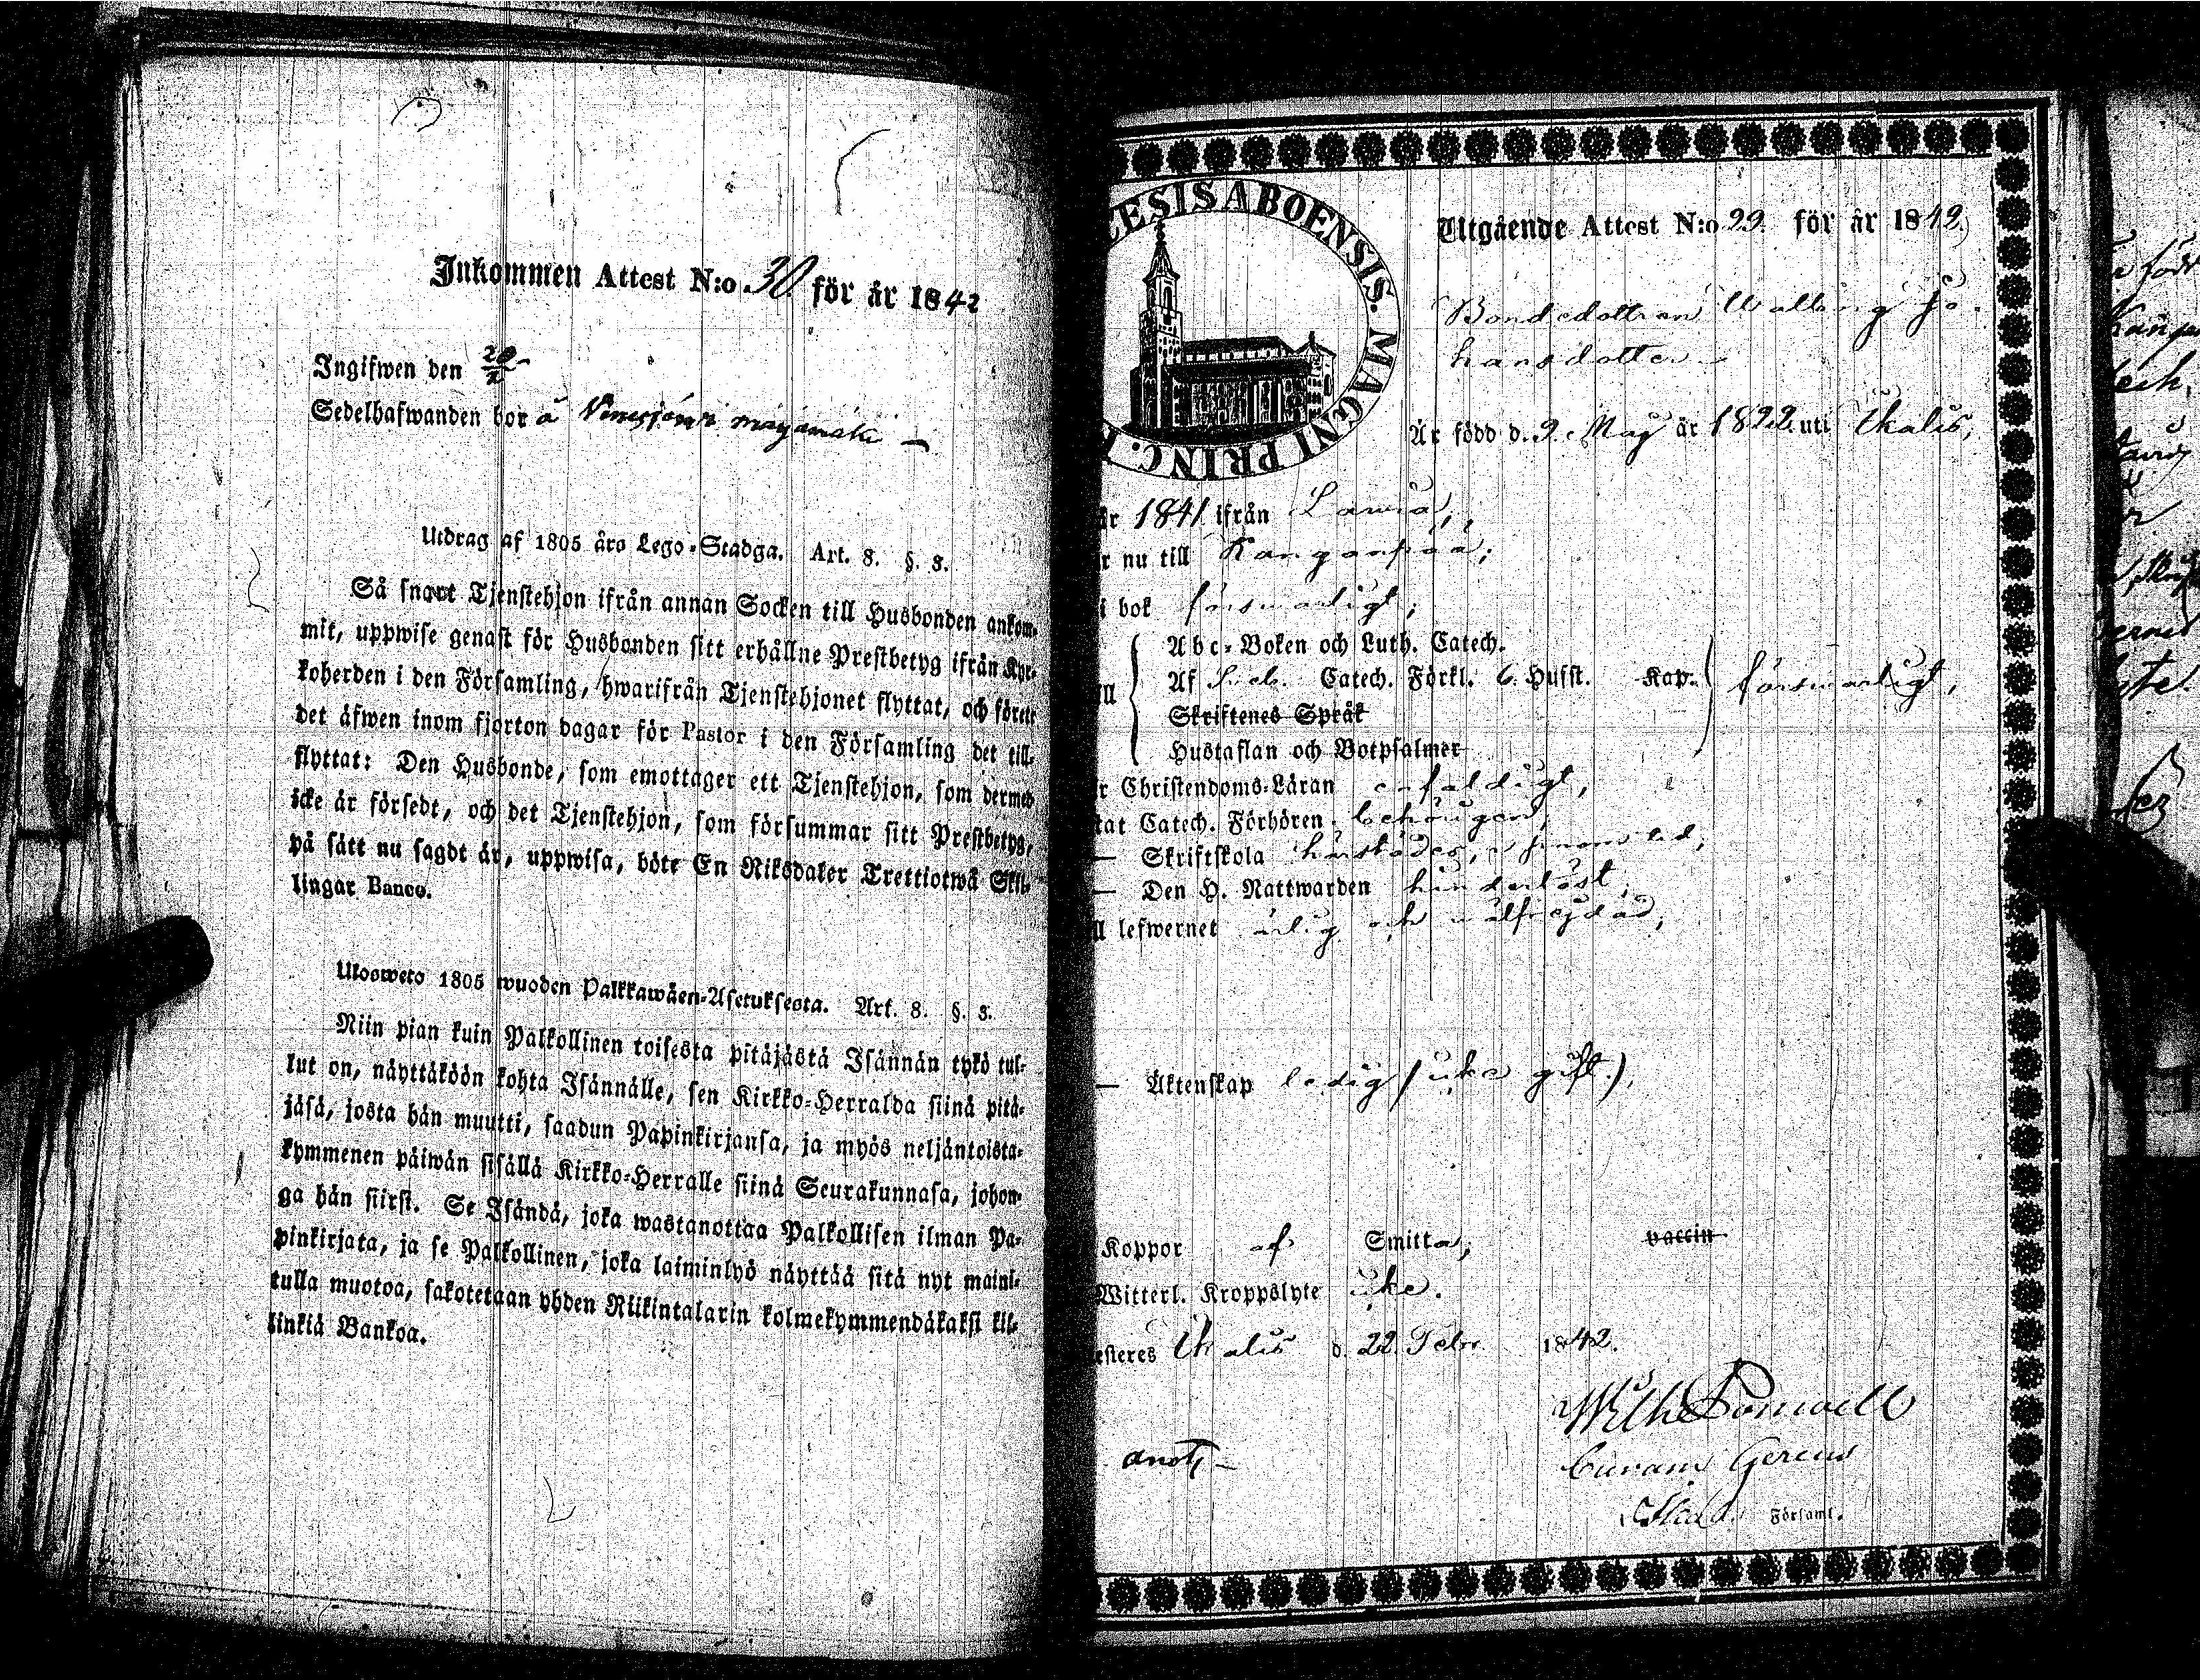 Inkommen Attest N:o 30 för år 1842
Ingifwen den 28/2
Sedelhafwanden bor å
Utdrag af 1805 års Lego-Stadga. Art. 8. §. 3.
Så snart Tjenstehjon ifrån annan Socken till Husbonden ankom-
mit, uppwise genast för Husbonden sitt erhållne Prestbetyg ifrån Kyr-
koherden i den Församling, hwarifrån Tjenstehjonet flyttat, och förete
det äfwen inom fjorton dagar för Pastor i den Församling det till-
flyttat: Den Husbonde, som emottager ett Tjenstehjon, som dermed
icke är försedt, och det Tjenstehjon, som försummar sitt Prestbetyg,
på sätt nu sagdt är, uppwisa, böte En Riksdaler Trettiotwå Skil-
lingar Banco.
Ulosweto 1805 wuoden Palkkawäen-Asetuksesta. Art. 8. §. 3.
Niin pian kuin Palkollinen toisesta pitäjästä Isännän tykö tul-
lut on, näyttäköön kohta Isännälle, sen Kirkko-Herralda siinä pitä-
jäsä, josta hän muutti, saadun Papinkirjansa, ja myös neljäntoista-
kymmenen päiwän sisällä Kirkko-Herralle siinä Seurakunnasa, johon-
ga hän siirsi. Se Isändä, joka wastanottaa Palkollisen ilman Pa-
pinkirjata, ja se Palkollinen, joka laiminlyö näyttää sitä nyt maini-
tulla muotoa, sakotetaan yhden Riikintalarin kolmekymmendäkaksi kil-
linkiä Bankoa.
ESIS ABOENSIS. MAGNI PRINC.
Utgående Attest N:o 29. för år 1842.
Bondedottren Walborg Jo-
hansdotter
Är född d. 9. Maj år 1822. uti Ikalis,
år 1841 ifrån Lawia,
r nu till Kanganpää,
i bok försvarligt,
Abc-Boken och Luth. Catech.
Af Sveb. Catech. Förkl. 6. Hufst. Kap. försvarligt,
Skriftenes Språk
Hustaflan och Botpsalmer
r Christendoms-Läran enfaldigt,
tat Catech. Förhören behörigen,
— Skriftskola härstädes,
— Den H. Nattwarden hinderlöst,
ll lefwernet ärlig och wälfrejdad,
— Äktenskap ledig (icke gift),
Koppor af Smitta, vaccin
Witterl. Kroppslyte icke.
esteres Ikalis d. 22. Febr. 1842.
Wilh
Curam Gerens
Församl.
anot